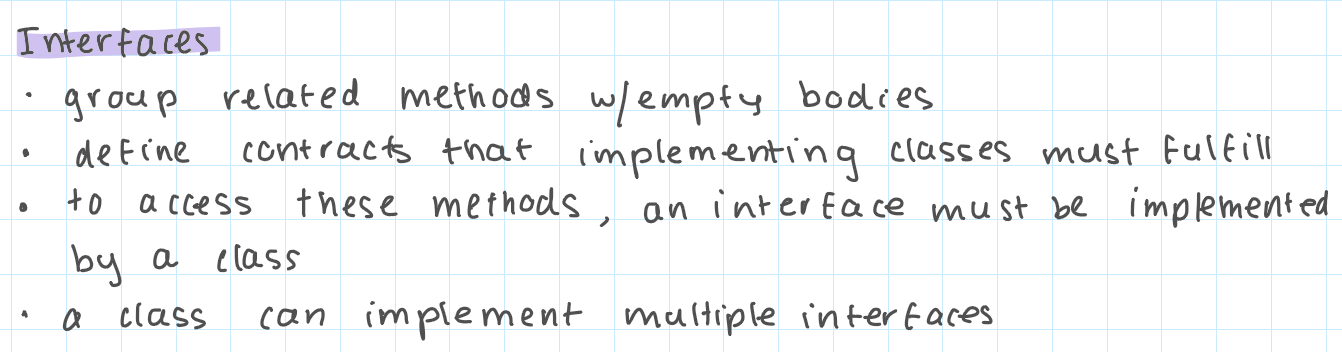 Interfaces
· group related methods w/empty bodies
· define contracts that implementing classes must fulfill
· to access these methods, an interface must be implemented
by a class
· a class can implement multiple interfaces